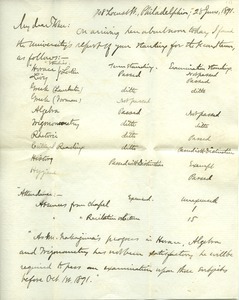 Locust St, Philadelphia, 23 June, 1891.
My dear
On arriving here about noon to-day, I found
the University's report of your standing for the term,
as follows:
Term Standing Examination Standing
Horace Passed Not passed
Livy Passed
Greek ditto ditto
Greek ditto ditto
Algebra Passed Not passed
Trigonometry ditto
Rhetoric ditto Passed
English Reading ditto
History Passed with Distinction Exempt
Hygiene Passed
Attendance:
Absences from Chapel Excused, 1
" Recitation 1 15
"As Mr. progress in Horace, Algebra
and Trigonometry has not been satisfactory, he will be
required to pass an examination upon these subjects
before Oct. 1st, 1891."